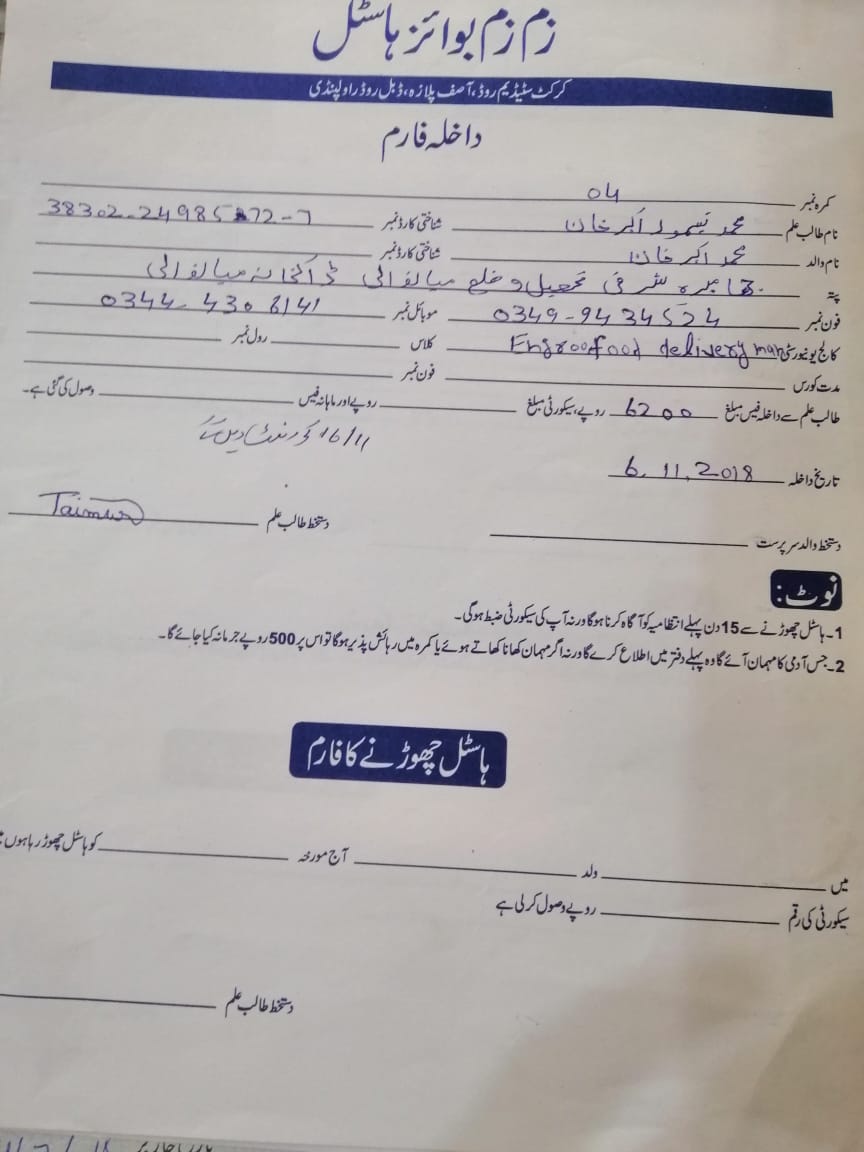 زم زم بوائز ہاسٹل
کرکٹ سٹیڈیم روڈ، آصف پلازہ، ڈبل روڈ راولپنڈی
داخلہ فارم
کمرہ نمبر 04
نام طالب علم محمد تیمور اکبر خان شناختی کارڈ نمبر 38302-2498572-7
نام والد محمد اکبر خان شناختی کارڈ نمبر
پتہ شرقی تحصیل و ضلع میانوالی ڈاکخانہ میانوالی
فون نمبر 0349-9434524 موبائل نمبر 0344-4306141
کالج یونیورسٹی Engroofood delivery man کلاس رول نمبر
مدت کورس فون نمبر
طالب علم سے داخلہ فیس مبلغ 6200 روپے، سیکورٹی مبلغ روپے اور ماہانہ فیس وصول کی گئی ہے۔
16/11 کو رینٹ دیں گے
تاریخ داخلہ 6.11.2018
دستخط والد سرپرست دستخط طالب علم Taimur
نوٹ:
1۔ ہاسٹل چھوڑنے سے 15 دن پہلے انتظامیہ کو آگاہ کرنا ہوگا ورنہ آپ کی سیکورٹی ضبط ہوگی۔
2۔ جس آدمی کا مہمان آئے گا وہ پہلے دفتر میں اطلاع کرے گا ورنہ اگر مہمان کھانا کھاتے ہوئے یا کمرہ میں رہائش پذیر ہوگا تو اس پر 500 روپے جرمانہ کیا جائے گا۔
ہاسٹل چھوڑنے کا فارم
میں ولد آج مورخہ کو ہاسٹل چھوڑ رہا ہوں
سیکورٹی کی رقم روپے وصول کر لی ہے
دستخط طالب علم